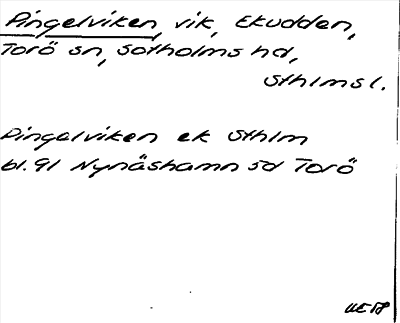 Pingelviken, vik, Ekudden,
Torö sn, Sotholms hd,
Sthlms l.
Pingelviken ek Sthlm
bl. 91 Nynäshamn sd Torö